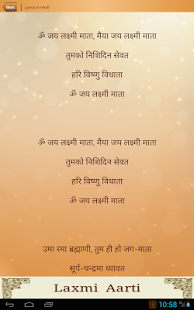 Lyrics in Hindi
ॐ जय लक्ष्मी माता, मैया जय लक्ष्मी माता
तुमको निशिदिन सेवत
हरि विष्णु विधाता
ॐ जय लक्ष्मी माता
ॐ जय लक्ष्मी माता, मैया जय लक्ष्मी माता
तुमको निशिदिन सेवत
हरि विष्णु विधाता
ॐ जय लक्ष्मी माता
उमा रमा ब्रह्माणी, तुम ही हो जग-माता
सूर्य-चन्द्रमा ध्यावत
Laxmi Aarti
10:58